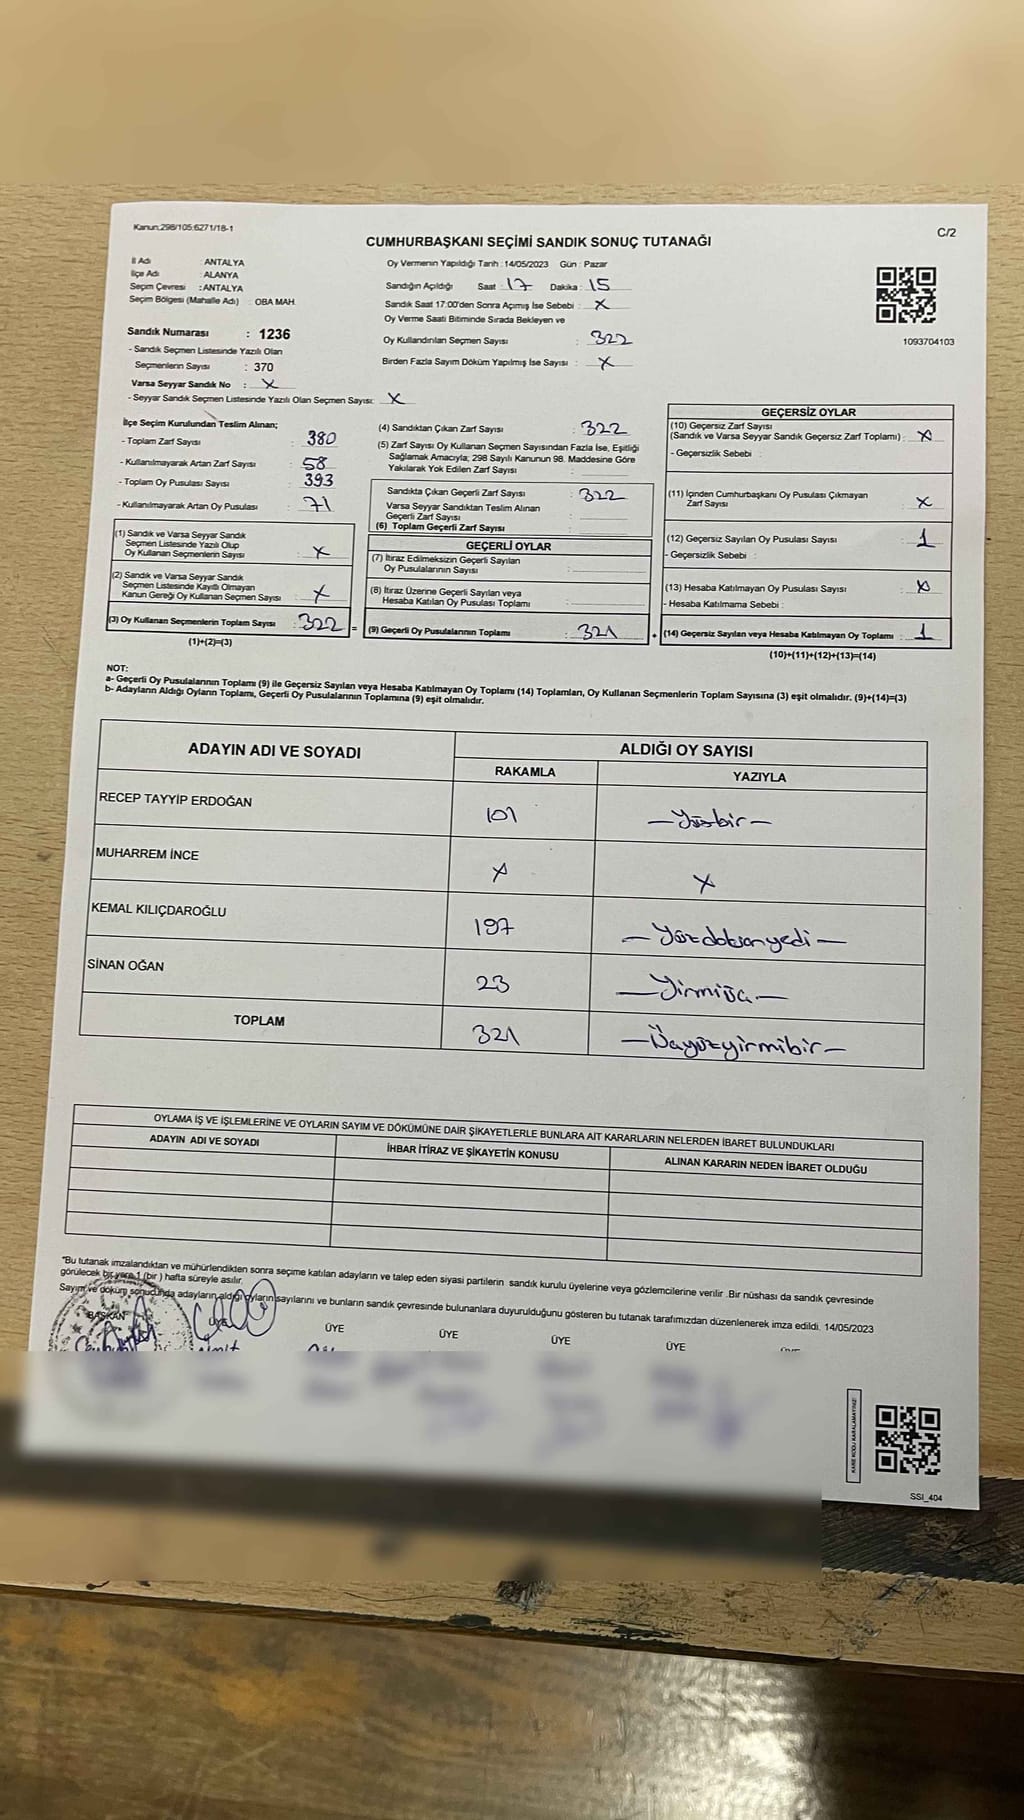 Kanun:298/105:6271/18-1
C/2
CUMHURBAŞKANI SEÇİMİ SANDIK SONUÇ TUTANAĞI
İl Adı : ANTALYA
İlçe Adı : ALANYA
Seçim Çevresi : ANTALYA
Seçim Bölgesi (Mahalle Adı) : OBA MAH.
Sandık Numarası : 1236
- Sandık Seçmen Listesinde Yazılı Olan
Seçmenlerin Sayısı : 370
Varsa Seyyar Sandık No : X
- Seyyar Sandık Seçmen Listesinde Yazılı Olan Seçmen Sayısı: X
Oy Vermenin Yapıldığı Tarih : 14/05/2023 Gün : Pazar
Sandığın Açıldığı Saat : 17 Dakika : 15
Sandık Saat 17:00'den Sonra Açımış İse Sebebi : X
Oy Verme Saati Bitiminde Sırada Bekleyen ve
Oy Kullandırılan Seçmen Sayısı : 322
Birden Fazla Sayım Döküm Yapılmış İse Sayısı : X
1093704103
İlçe Seçim Kurulundan Teslim Alınan;
- Toplam Zarf Sayısı : 380
- Kullanılmayarak Artan Zarf Sayısı : 58
- Toplam Oy Pusulası Sayısı : 393
- Kullanılmayarak Artan Oy Pusulası : 71
(1) Sandık ve Varsa Seyyar Sandık
Seçmen Listesinde Yazılı Olup
Oy Kullanan Seçmenlerin Sayısı : X
(2) Sandık ve Varsa Seyyar Sandık
Seçmen Listesinde Kayıtlı Olmayan
Kanun Gereği Oy Kullanan Seçmen Sayısı : X
(3) Oy Kullanan Seçmenlerin Toplam Sayısı : 322 =
(1)+(2)=(3)
(4) Sandıktan Çıkan Zarf Sayısı : 322
(5) Zarf Sayısı Oy Kullanan Seçmen Sayısından Fazla İse, Eşitliği
Sağlamak Amacıyla; 298 Sayılı Kanunun 98. Maddesine Göre
Yakılarak Yok Edilen Zarf Sayısı :
Sandıkta Çıkan Geçerli Zarf Sayısı : 322
Varsa Seyyar Sandıktan Teslim Alınan
Geçerli Zarf Sayısı :
(6) Toplam Geçerli Zarf Sayısı :
GEÇERLİ OYLAR
(7) İtiraz Edilmeksizin Geçerli Sayılan
Oy Pusulalarının Sayısı :
(8) İtiraz Üzerine Geçerli Sayılan veya
Hesaba Katılan Oy Pusulası Toplamı :
(9) Geçerli Oy Pusulalarının Toplamı : 321 +
GEÇERSİZ OYLAR
(10) Geçersiz Zarf Sayısı
(Sandık ve Varsa Seyyar Sandık Geçersiz Zarf Toplamı) : X
- Geçersizlik Sebebi :
(11) İçinden Cumhurbaşkanı Oy Pusulası Çıkmayan
Zarf Sayısı : X
(12) Geçersiz Sayılan Oy Pusulası Sayısı : 1
- Geçersizlik Sebebi :
(13) Hesaba Katılmayan Oy Pusulası Sayısı : X
- Hesaba Katılmama Sebebi :
(14) Geçersiz Sayılan veya Hesaba Katılmayan Oy Toplamı : 1
(10)+(11)+(12)+(13)=(14)
NOT:
a- Geçerli Oy Pusulalarının Toplamı (9) ile Geçersiz Sayılan veya Hesaba Katılmayan Oy Toplamı (14) Toplamları, Oy Kullanan Seçmenlerin Toplam Sayısına (3) eşit olmalıdır. (9)+(14)=(3)
b- Adayların Aldığı Oyların Toplamı, Geçerli Oy Pusulalarının Toplamına (9) eşit olmalıdır.
ADAYIN ADI VE SOYADI ALDIĞI OY SAYISI
RAKAMLA YAZIYLA
RECEP TAYYİP ERDOĞAN 101 — Yüzbir —
MUHARREM İNCE X X
KEMAL KILIÇDAROĞLU 197 — Yüzdoksanyedi —
SİNAN OĞAN 23 — Yirmiüç —
TOPLAM 321 — Üçyüzyirmibir —
OYLAMA İŞ VE İŞLEMLERİNE VE OYLARIN SAYIM VE DÖKÜMÜNE DAİR ŞİKAYETLERLE BUNLARA AİT KARARLARIN NELERDEN İBARET BULUNDUKLARI
ADAYIN ADI VE SOYADI İHBAR İTİRAZ VE ŞİKAYETİN KONUSU ALINAN KARARIN NEDEN İBARET OLDUĞU
*Bu tutanak imzalandıktan ve mühürlendikten sonra seçime katılan adayların ve talep eden siyasi partilerin sandık kurulu üyelerine veya gözlemcilerine verilir .Bir nüshası da sandık çevresinde
görülecek bir yere 1 (bir ) hafta süreyle asılır.
Sayım ve döküm sonucunda adayların aldığı oyların sayılarını ve bunların sandık çevresinde bulunanlara duyurulduğunu gösteren bu tutanak tarafımızdan düzenlenerek imza edildi. 14/05/2023
BAŞKAN ÜYE ÜYE ÜYE ÜYE
KARE KODU KARALAMAYINIZ!
SSI_404